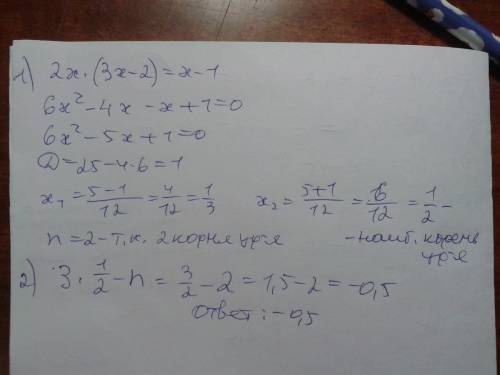 1) 2x·(3x-2)=x-1
6x²-4x-x+1=0
6x²-5x+1=0
D=25-4·6=1
x₁=(5-1)/12=4/12=1/3 x₂=(5+1)/12=6/12=1/2-
n=2-т.к. 2 корня ур-я -наиб. корень
ур-я
2) 3·1/2-n=3/2-2=1,5-2=-0,5
ответ:-0,5